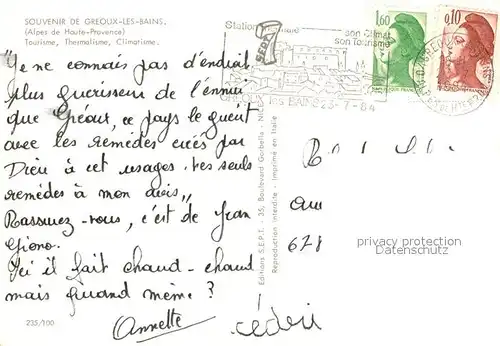 SOUVENIR DE GREOUX-LES-BAINS.
(Alpes de Haute-Provence)
Tourisme, Thermalisme, Climatisme.
"Je ne connais pas d'endroit
plus guérisseur de l'ennui
que Gréoux, ce pays le guérit
avec les remèdes créés par
Dieu à cet usage. Les seuls
remèdes à mon avis"
Rassurez-vous, c'est de Jean
Giono.
Ici il fait chaud - chaud
mais quand même ?
Annette
cédri
235/100
Editions S.E.P.T. - 35, Boulevard Gorbella - NICE
Reproduction Interdite - Imprimé en Italie
Station
son Climat
son Tourisme
SEPT
les BAINS 23-7-84
1,60
0,10
678
privacy protection
Datenschutz